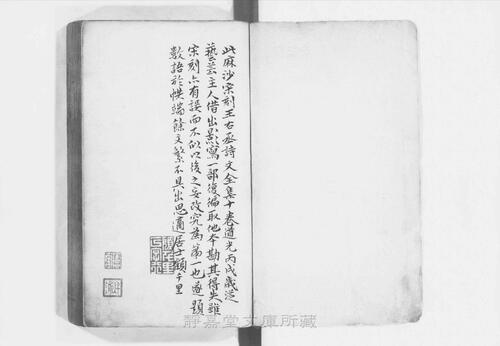 此麻沙宋刻王右丞詩文全集十卷道光丙戌歲從
藝芸主人借出影寫一部復徧取他本勘其得失雖
宋刻亦有誤而不似以後之妄改究為第一也遂題
數語於帙端餘文繁不具出思適居士顧千里
靜嘉堂文庫所藏